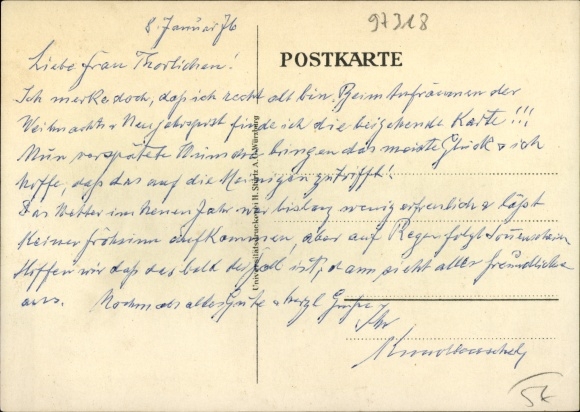 97318
8. Januar 76
POSTKARTE
Liebe Frau Thorlichen!
Ich merke doch, daß ich recht alt bin. Beim Aufräumen der
Weihnachts & Neujahrspost finde ich die beigehende Karte!!!
Nun, verspätete Wünsche bringen das meiste Glück & ich
hoffe, daß das auf die Meinigen zutrifft!
Das Wetter im Neuen Jahr war bislang wenig erfreulich & läßt
keinen Frohsinn aufkommen, aber auf Regen folgt Sonnenschein
Hoffen wir daß das bald der Fall ist, dann sieht alles freundlicher
aus. Nochmals alles Gute & herzl Grüße
Ihr
Universitätsdruckerei H. Stürtz A.G. Würzburg